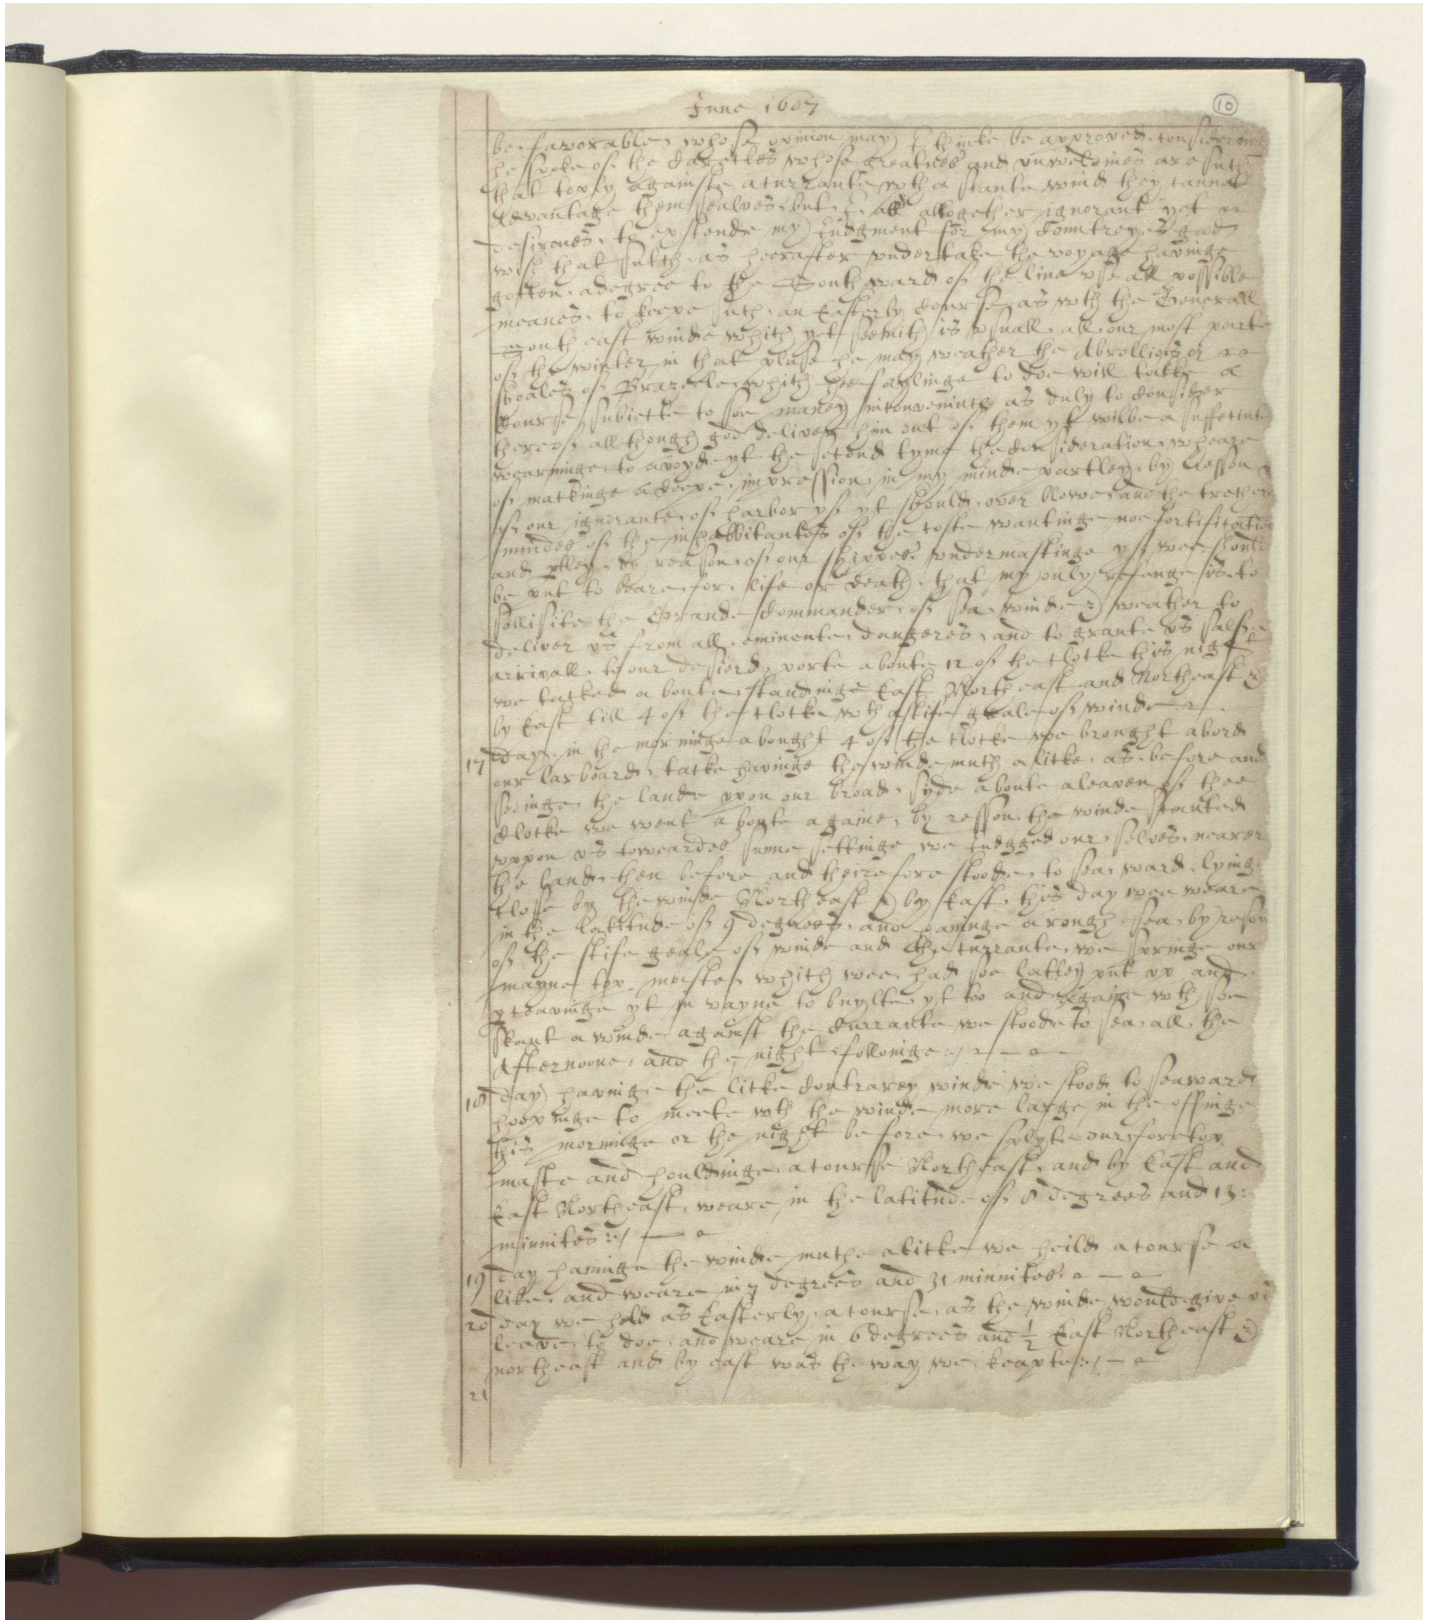 June 1607
10
be favorable, whose opinion may I thinke be approved, considering
he spoke of the Carickes whose greatnes and unweldines are such
that to ply againste a currante wth a scante wind they cannot
Advantage themsealves, but I, all alltogether ignorant yet
desirous, to extende my Judgment for my Countreyes good
wish that sutch as heerafter undertake the voyage havinge
gotten a degree to the Southward of the line use all possible
meanes, to keepe such an Easterly course, as wth the Generall
South east winde which yet seemith is usuall, all our most parte
of the winter in that place he may weather the Abrollios or
shoales of Brazele, which hee faylinge to doe will take a
course subiecte to soe maney inconvenince as duly to consider
thereof all though god deliver him out of them yt wilbe a suffetinte
wearninge to avoyde yt the second tyme the consideration wheare
of matkinge a deepe impression in my minde partley by reason
of our ignorante of harbor yf yt should over blowe, and the trecher
mindes of the inhabbitantes of the coste wantinge noe fortification
and ptley by reason of our shippes undermastinge yf wee should
be put to beare for life or death, that my only refuge is to
sollisite the Grande Commander of sea, winde & weather to
deliver us from all eminente dangeres, and to grante us salfe
arrivall to our desierd porte aboute 12 of the clocke this nigt
we tacked aboute, standinge East North east and Northeast &
by East till 4 of the clocke wth a stife geale of winde
17 day in the morninge abought 4 of the clocke we brought abord
our larboard tacke havinge the winde mutch alicke as before and
seeinge the lande upon our broad syde aboute aleaven of thee
Clocke we went aboute againe, by resson the winde scanted
uppon us towardes sunne settinge we Judgged our selves nearer
the land then before and theirefore stoode to sea ward lying
close by the winde North east & by East, this day wee weare
in the latitude of 9 degrees, and havinge a rough sea by reson
of the stife geale of winde and the currante, we springe our
mayne top maste, which wee had soe latley put up and
pceavinge yt in vayne to buylte yt too and againe wth soe
skant a winde against the Currante we stoode to sea all the
Afternoone, and the night followinge
18 day havinge the licke Contrarey winde we stood to seaward
hoopinge to meete wth the winde more large in the offinge
this morninge or the night before, we splyte our foretop
maste and houldinge a course North east, and by East and
East Northeast, weare in the latitude of 8 degrees and 13:
minnites
19 day havinge the winde mutche alicke we heild a course
like, and weare in 7 degrees and 31 minnites
20 day we held as Easterly a course, as the winde would give us
leave to doe, and weare in 6 degrees and 1/2 East North east &
northeast and by east was the way we keapte
21